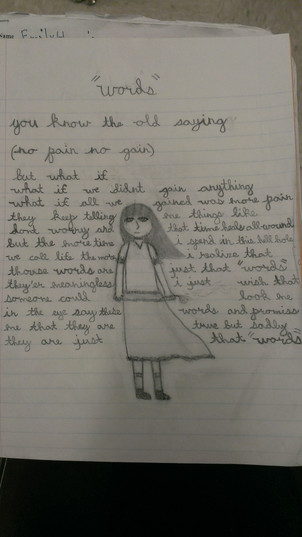 "words"
you know the old saying
(no pain no gain)
but what if
what if we didnt gain anything
what if all we gained was more pain
they keep telling me things like
dont worry and that time heals all wounds
but the more time i spend in this hell hole
we call life the more i realise that
thouse words are just that "words"
they'er meaningless i just wish that
someone could look me
in the eye say these words and promiss
me that they are true but sadly
they are just that "words"